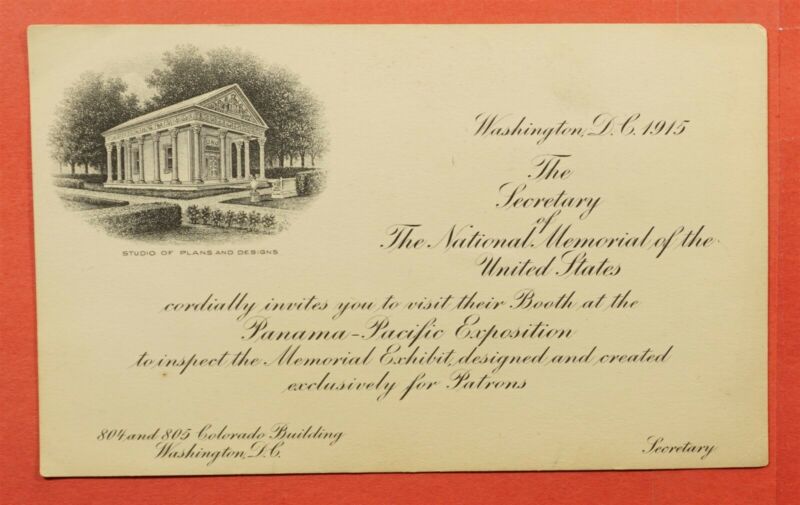 STUDIO OF PLANS AND DESIGNS
Washington, D.C. 1915
The
Secretary
of
The National Memorial of the
United States
cordially invites you to visit their Booth at the
Panama-Pacific Exposition
to inspect the Memorial Exhibit, designed and created
exclusively for Patrons
804 and 805 Colorado Building
Washington, D.C.
Secretary